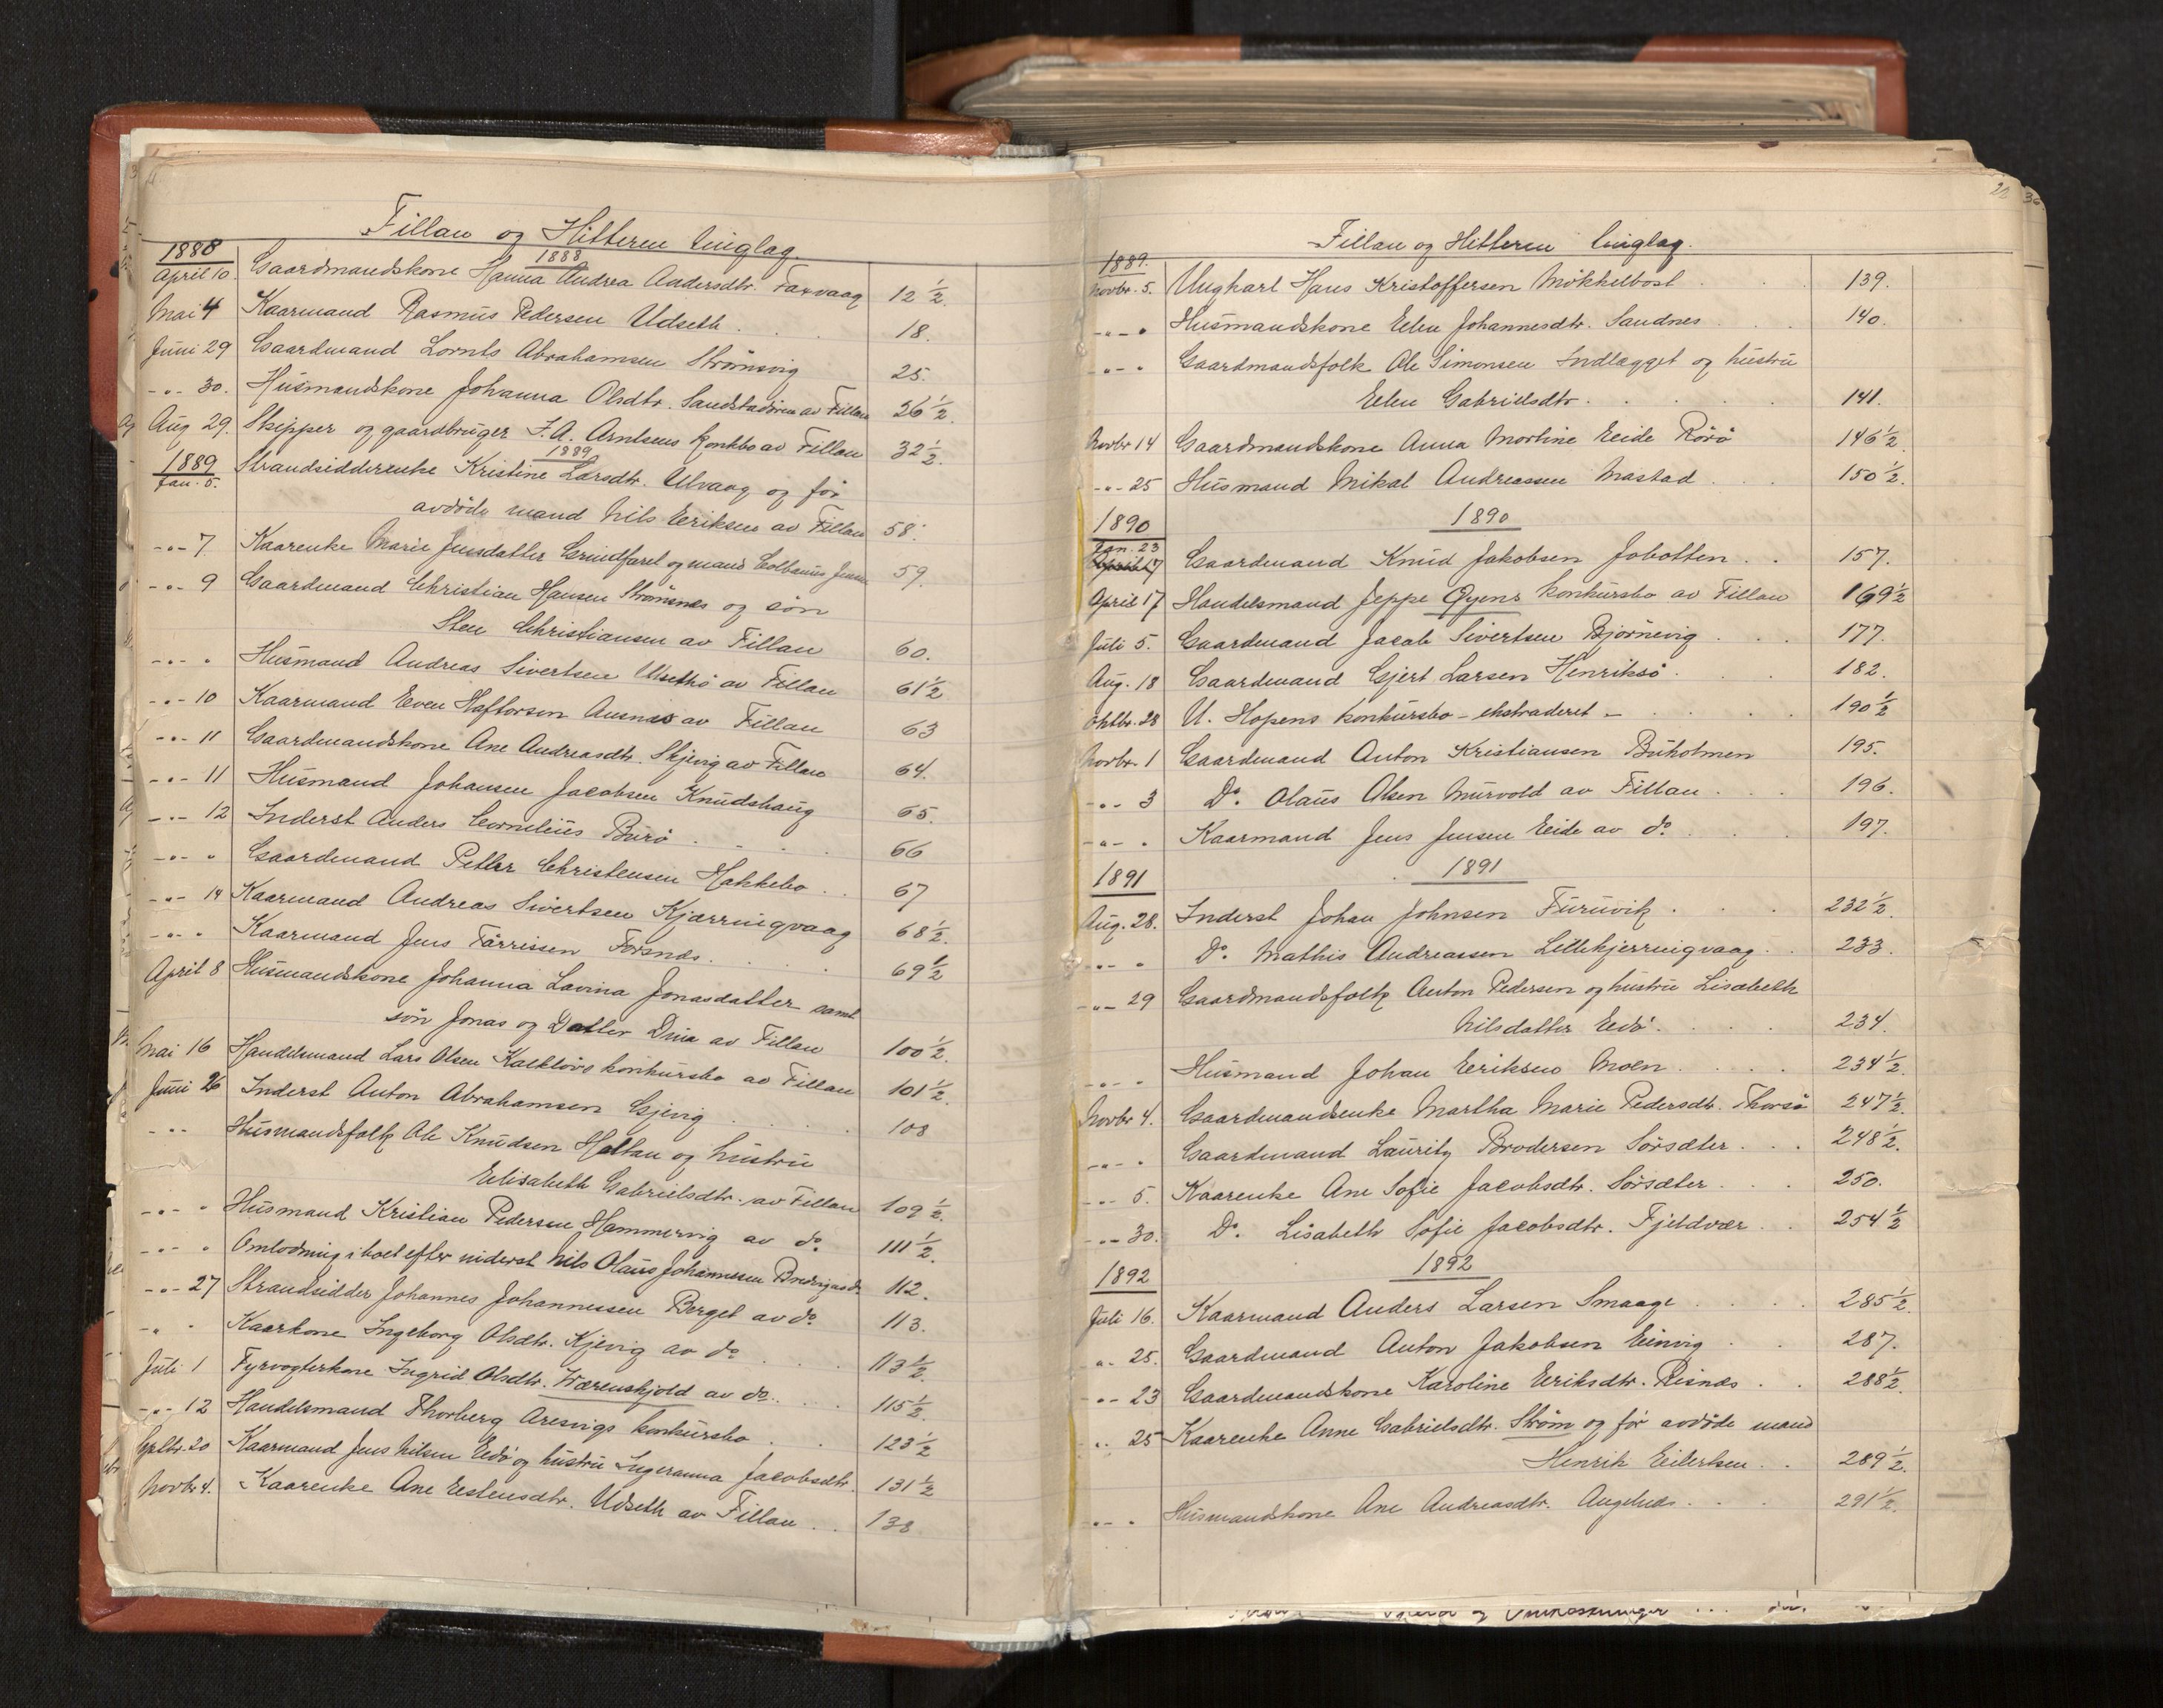 Fillan og Hitteren tinglag.
1888 1888
April 10. Gaardmandskone Hanna Andrea Andersdtr. Faxvaag 12 1/2.
Mai 4 Kaarmand Rasmus Pedersen Udseth . . 18.
Juni 29 Gaardmand Lornts Abrahamsen Strømsvig 25.
-"- 30. Husmandskone Johanna Olsdtr. Sandstadøren av Fillan 26 1/2.
Aug 29. Skipper og gaardbruger J. A. Arntsens konkbo av Fillan 32 1/2.
1889 1889
Jan. 5. Strandsidderenke Kristine Larsdtr. Ulvaag og før
avdøde mand Nils Eriksen av Fillan 58.
-"- 7 Kaarenke Marie Jensdatter Grindfaret og mand Colbanus Jensen 59.
-"- 9 Gaardmand Christian Hansen Strømsnes og søn
Sten Christiansen av Fillan 60.
-"- " Husmand Andreas Sivertsen Ulsethø av Fillan 61 1/2
-"- 10 Kaarmand Even Haftorsen Ausnes av Fillan 63
-"- 11 Gaardmandskone Ane Andreasdtr. Skjevig av Fillan 64.
-"- 11 Husmand Johansen Jacobsen Knudshaug 65.
-"- 12 Inderst Anders Cornelius Burø . . . . 66
-"- " Gaardmand Petter Christensen Hakkebo . . 67
-"- 14 Kaarmand Andreas Sivertsen Kjærringvaag 68 1/2.
-"- " Kaarmand Jens Tørrissen Forsnes . . . 69 1/2
April 8 Husmandskone Johanna Lavina Jonasdatter samt
søn Jonas og Datter Dina av Fillan 100 1/2.
Mai 16 Handelsmand Lars Olsen Kalkløvs konkursbo av Fillan 101 1/2.
Juni 26 Inderst Anton Abrahamsen Gjevig . . . . 108
-"- Husmandsfolk Ole Knudsen Haltan og hustru
Elisabeth Gabrielsdtr. av Fillan 109 1/2.
-"- " Husmand Kristian Pedersen Hammervig av do. 111 1/2.
-"- " Omlodning i boet efter inderst Nils Olaus Johannesen Bredvig av do 112.
-"- 27 Strandsidder Johannes Johannessen Berget av do. 113.
-"- " Kaarkone Ingeborg Olsdtr. Kjevig av do . . . . 113 1/2.
Juli 1 Fyrvogterkone Ingrid Olsdtr. Wærenskjold av do. . . . 115 1/2.
-"- 12 Handelsmand Thorberg Aresvigs konkursbo . . 123 1/2
Septbr. 20 Kaarmand Jens Nilsen Eidø og hustru Ingeranna Jacobsdtr. 131 1/2
Novbr 4. Kaarenke Ane Estensdtr. Udseth av Fillan . . 138
Fillan og Hitteren tinglag.
1889.
Novbr. 5. Ungkarl Hans Kristoffersen Mökkelbost . . . 139.
-"- " Husmandskone Elen Johannesdtr. Sandnes . . . 140.
-"- " Gaardmandsfolk Ole Simonsen Indlægget og hustru
Elen Gabrielsdtr . . . . . . 141.
Novbr 14 Gaardmandskone Anna Martine Eide Rørø 146 1/2.
-"- 25 Husmand Mikal Andreassen Mastad . . . 150 1/2.
1890 1890
Jan. 23 Gaardmand Knud Jakobsen Jobotten . . 157.
April 17
April 17 Handelsmand Jeppe Øyens konkursbo av Fillan 169 1/2
Juli 5. Gaardmand Jacob Sivertsen Bjørnevig . . . 177.
Aug. 18 Gaardmand Gjert Larsen Henriksø . . . 182.
Oktbr. 28 U. Hopens konkursbo - ekstraderet - . . . 190 1/2
Novbr. 1 Gaardmand Anton Kristiansen Buholmen 195.
-"- 3 Do. Olaus Olsen Murvold av Fillan . . . 196.
-"- " Kaarmand Jens Jensen Eide av do . . . . 197.
1891 1891
Aug. 28. Inderst Johan Johnsen Furuvik . . . 232 1/2.
-"- " Do. Mathis Andreassen Lillekjerringvaag . . 233.
-"- 29 Gaardmandsfolk Anton Pedersen og hustru Lisabeth
Nilsdatter Eidø . . . . 234.
-"- " Husmand Johan Eriksen Moen . . . . 234 1/2.
Novbr 4. Gaardmandsenke Martha Marie Pedersdtr. Thorsø 247 1/2.
-"- " Gaardmand Lauritz Brodersen Sørsæter . . . 248 1/2.
-"- 5. Kaarenke Ane Sofie Jacobsdtr. Sørsæter . . . 250.
-"- 30. Do. Lisabeth Sofie Jacobsdtr. Fjeldvær . . 254 1/2
1892 1892
Juli 16. Kaarmand Anders Larsen Smaage . . . . 285 1/2.
"- 25. Gaardmand Anton Jakobsen Einvig . . 287.
-"- 23 Gaardmandskone Karoline Eriksdtr. Risnes . . 288 1/2.
"- 25 Kaarenke Anne Gabrielsdtr. Strøm og før avdøde mand
Henrik Eilertsen . . 289 1/2.
-"- " Husmandskone Ane Andreasdtr. . . . 291 1/2.